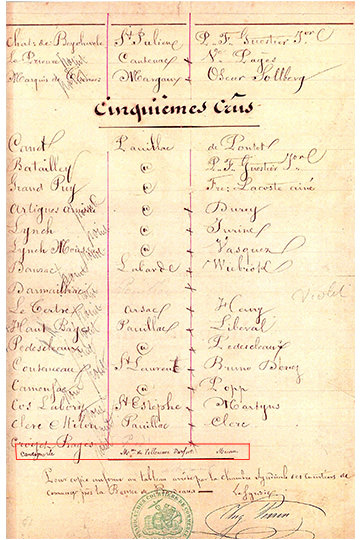 Chat. de Beychevele St Julien P. F. Guestier Jor
Le Prieuré Cantenac Ve Pagès
Marquis de Thermes Margaux Oscar Sollberg
Cinquièmes Crûs
Canet Pauillac de Pontet
Batailley @ P. F. Guestier Jor
Grand Puy @ Fr Lacoste ainé
Artigues Arnaud @ Duroy
Lynch @ Jurine
Lynch Moussas @ Vasquez
Dauzac Labarde Wiebrok
Darmailhac
Le Tertre Arsac Henry
Haut Bages Pauillac Liberal
Pedesclaux @ Pedesclaux
Coutanceau St Laurent Bruno Devez
Camensac @ Popp
Cos Labory St Estèphe Martyns
Clerc Milon Pauillac Clerc
Croizet-Bages
Cantemerle Mme de Villeneuve Durfort Macau
Pour copie conforme au tableau arrêté par la Chambre Syndicale des Courtiers de
commerce près la Bourse de Bordeaux
Le Syndic
Violet